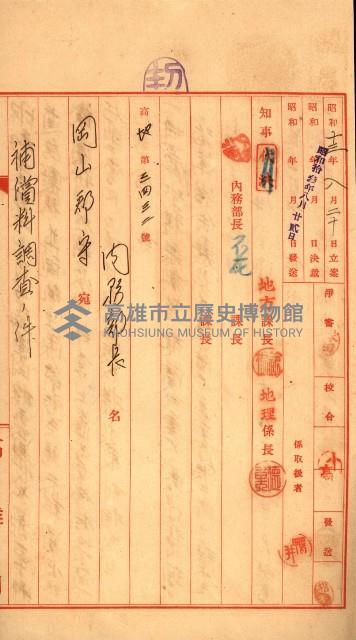 昭和十三年八月二十日立案
昭和　年　月　日決裁
昭和拾參年八月廿貳日
昭和　年　月　日發送
淨書
校合
發送
係取扱者
知事
代理
內務部長
地方課長
課長
課長
地理係長
高地第二四三二號
內務部長名
岡山郡守宛
補償料調查ノ件
高雄市立歷史博物館
KAOHSIUNG MUSEUM OF HISTORY